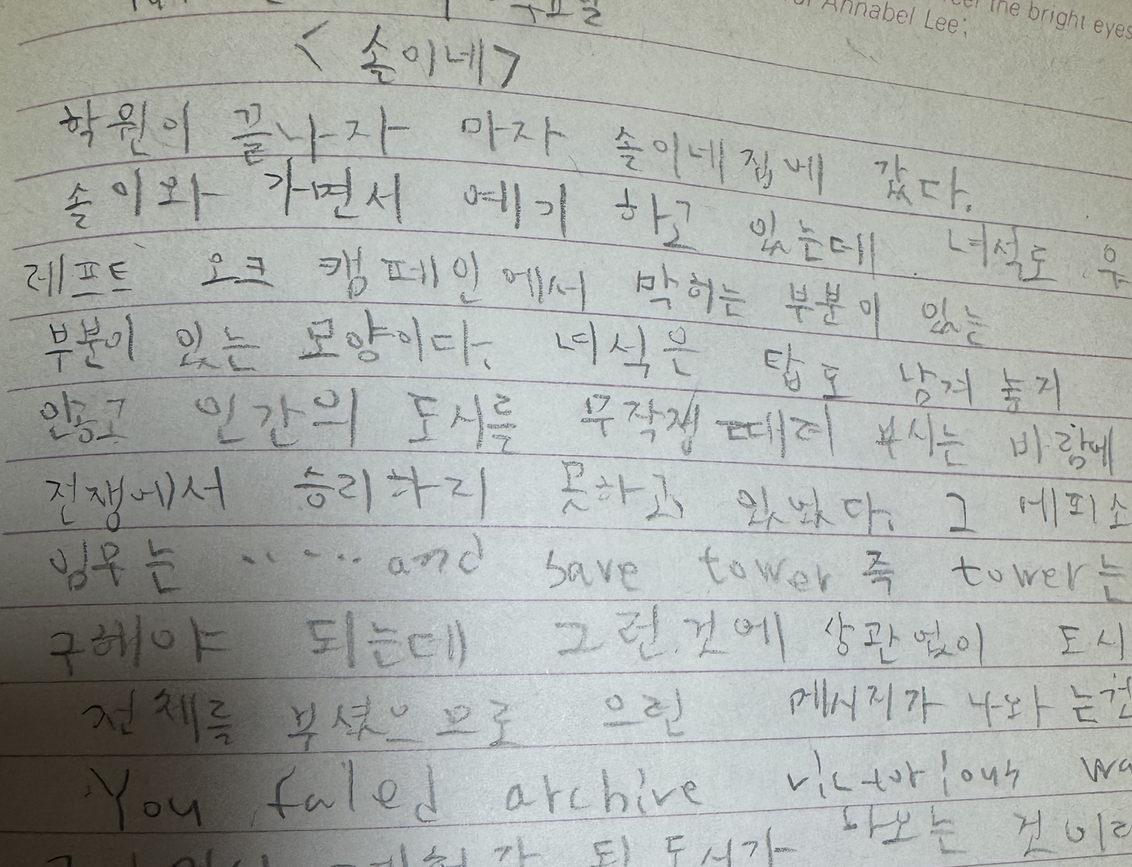 the bright eyes
Annabel Lee;
< 솔이네>
학원이 끝나자 마자 솔이네집에 갔다.
솔이와 가면서 예기 하고 있는데 녀석도 우
레프트 오크 캠페인에서 막히는 부분이 있는
부분이 있는 모양이다. 녀석은 탑도 남겨 놓지
안公고 인간의 도시를 무작쟁 때려 부시는 바람에
전쟁에서 승리하지 못하고 있었다. 그 에피소
임무는 ...... and save tower 즉 tower는
구해야 되는데 그런 것에 상관없이 도시
전체를 부셨으므로 으런 메시지가 나와 는것
You failed archive victorious wa